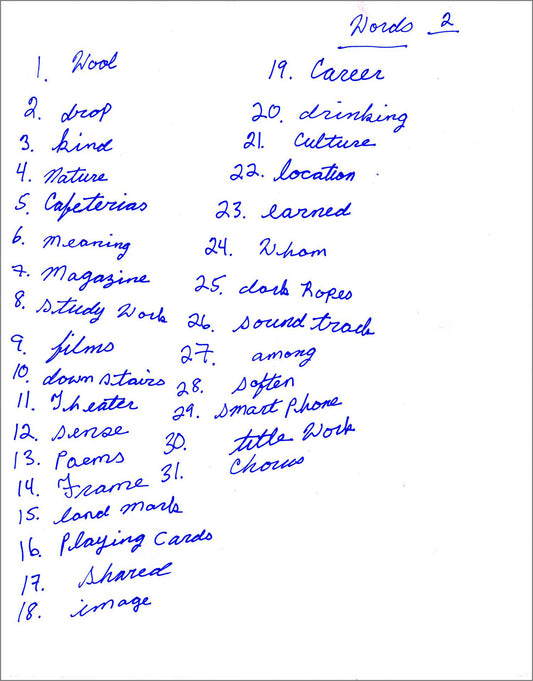 Words 2
1. Wool
2. drop
3. kind
4. Nature
5. Cafeterias
6. meaning
7. Magazine
8. study Work
9. films
10. down stairs
11. Theater
12. sense
13. Poems
14. Frame
15. land mark
16. Playing Cards
17. shared
18. image
19. Career
20. drinking
21. Culture
22. location
23. earned
24. Whom
25. dark Ropes
26. sound track
27. among
28. soften
29. smart Phone
30. title Work
31. Chorus